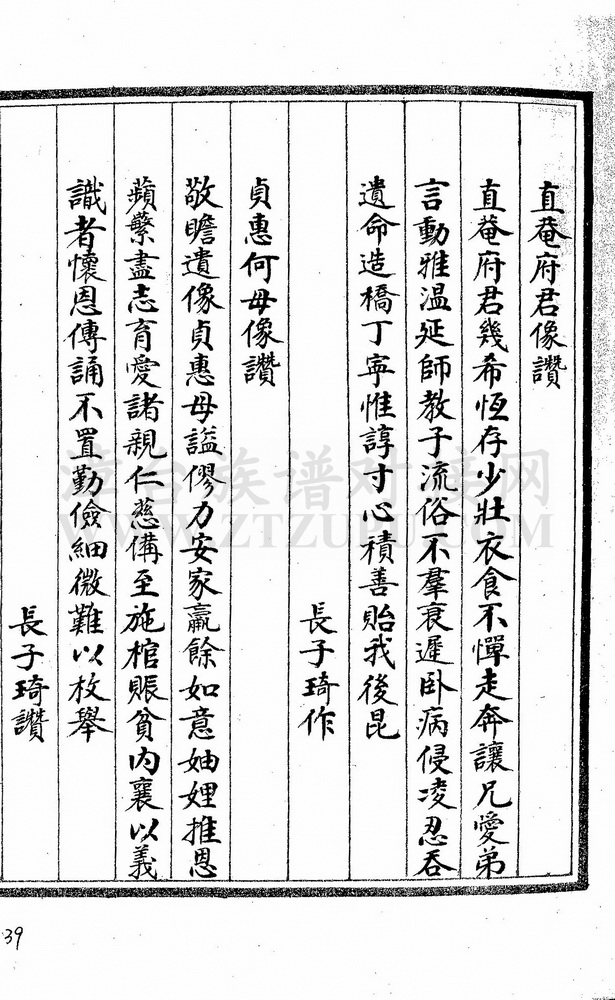 直菴府君像讚
直菴府君幾希恆存少壯衣食不憚走奔讓兄愛弟
言動雅温延師教子流俗不羣衰遲卧病侵凌忍吞
遺命造橋丁寧惟諄寸心積善貽我後昆
長子琦作
貞惠何母像讚
敬瞻遺像貞惠母謚僇力安家贏餘如意妯娌推恩
蘋蘩盡志育愛諸親仁慈備至施棺賬貧內襄以義
識者懷恩傳誦不置勤儉細微難以枚舉
長子琦讚
漳台族谱对接网
WWW.ZTZUPU.COM
39